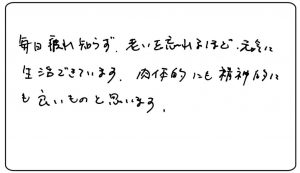 毎日疲れ知らず、老いを忘れるほど、元気に
生活できています。肉体的にも精神的に
も良いものと思います。